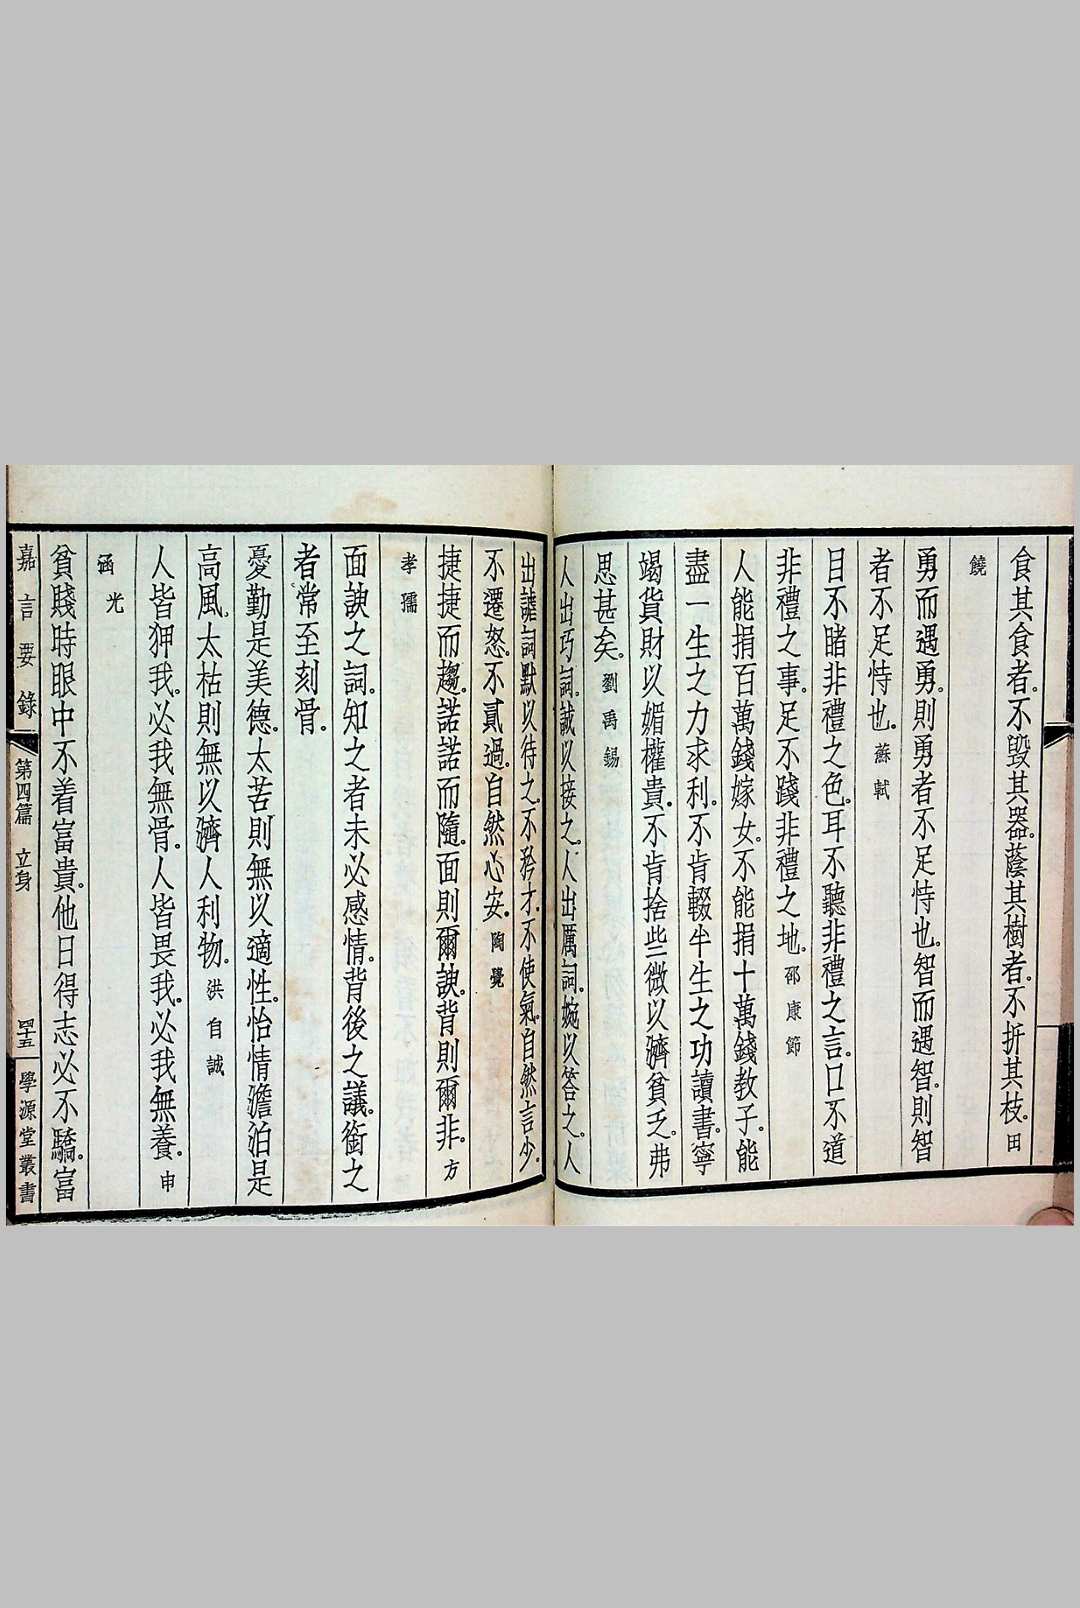 食其食者。不毀其器。蔭其樹者。不折其枝。田
饒
勇而遇勇。則勇者不足恃也。智而遇智。則智
者不足恃也。蘇軾
目不睹非禮之色。耳不聽非禮之言。口不道
非禮之事。足不踐非禮之地。邵康節
人能捐百萬錢嫁女。不能捐十萬錢教子。能
盡一生之力求利。不肯輟半生之功讀書。寧
竭貨財以媚權貴。不肯捨些微以濟貧乏。弗
思甚矣。劉禹錫
人出巧詞。誠以接之。人出厲詞。婉以答之。人
出謔詞。默以待之。不矜才。不使氣。自然言少。
不遷怒。不貳過。自然心安。陶覺
捷捷而趨。諾諾而隨。面則爾諛。背則爾非。方
孝孺
面諛之詞。知之者未必感情。背後之議。銜之
者常至刻骨。
憂勤是美德。太苦則無以適性。怡情澹泊是
高風。太枯則無以濟人利物。洪自誠
人皆狎我。必我無骨。人皆畏我。必我無養。申
涵光
貧賤時眼中不着富貴。他日得志必不驕。富
嘉言要錄 第四篇 立身 四十五 學源堂叢書